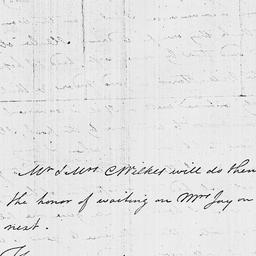 Mr & Mrs C Wilkes will do them
the honor of waiting on Mrs Jay on
next.